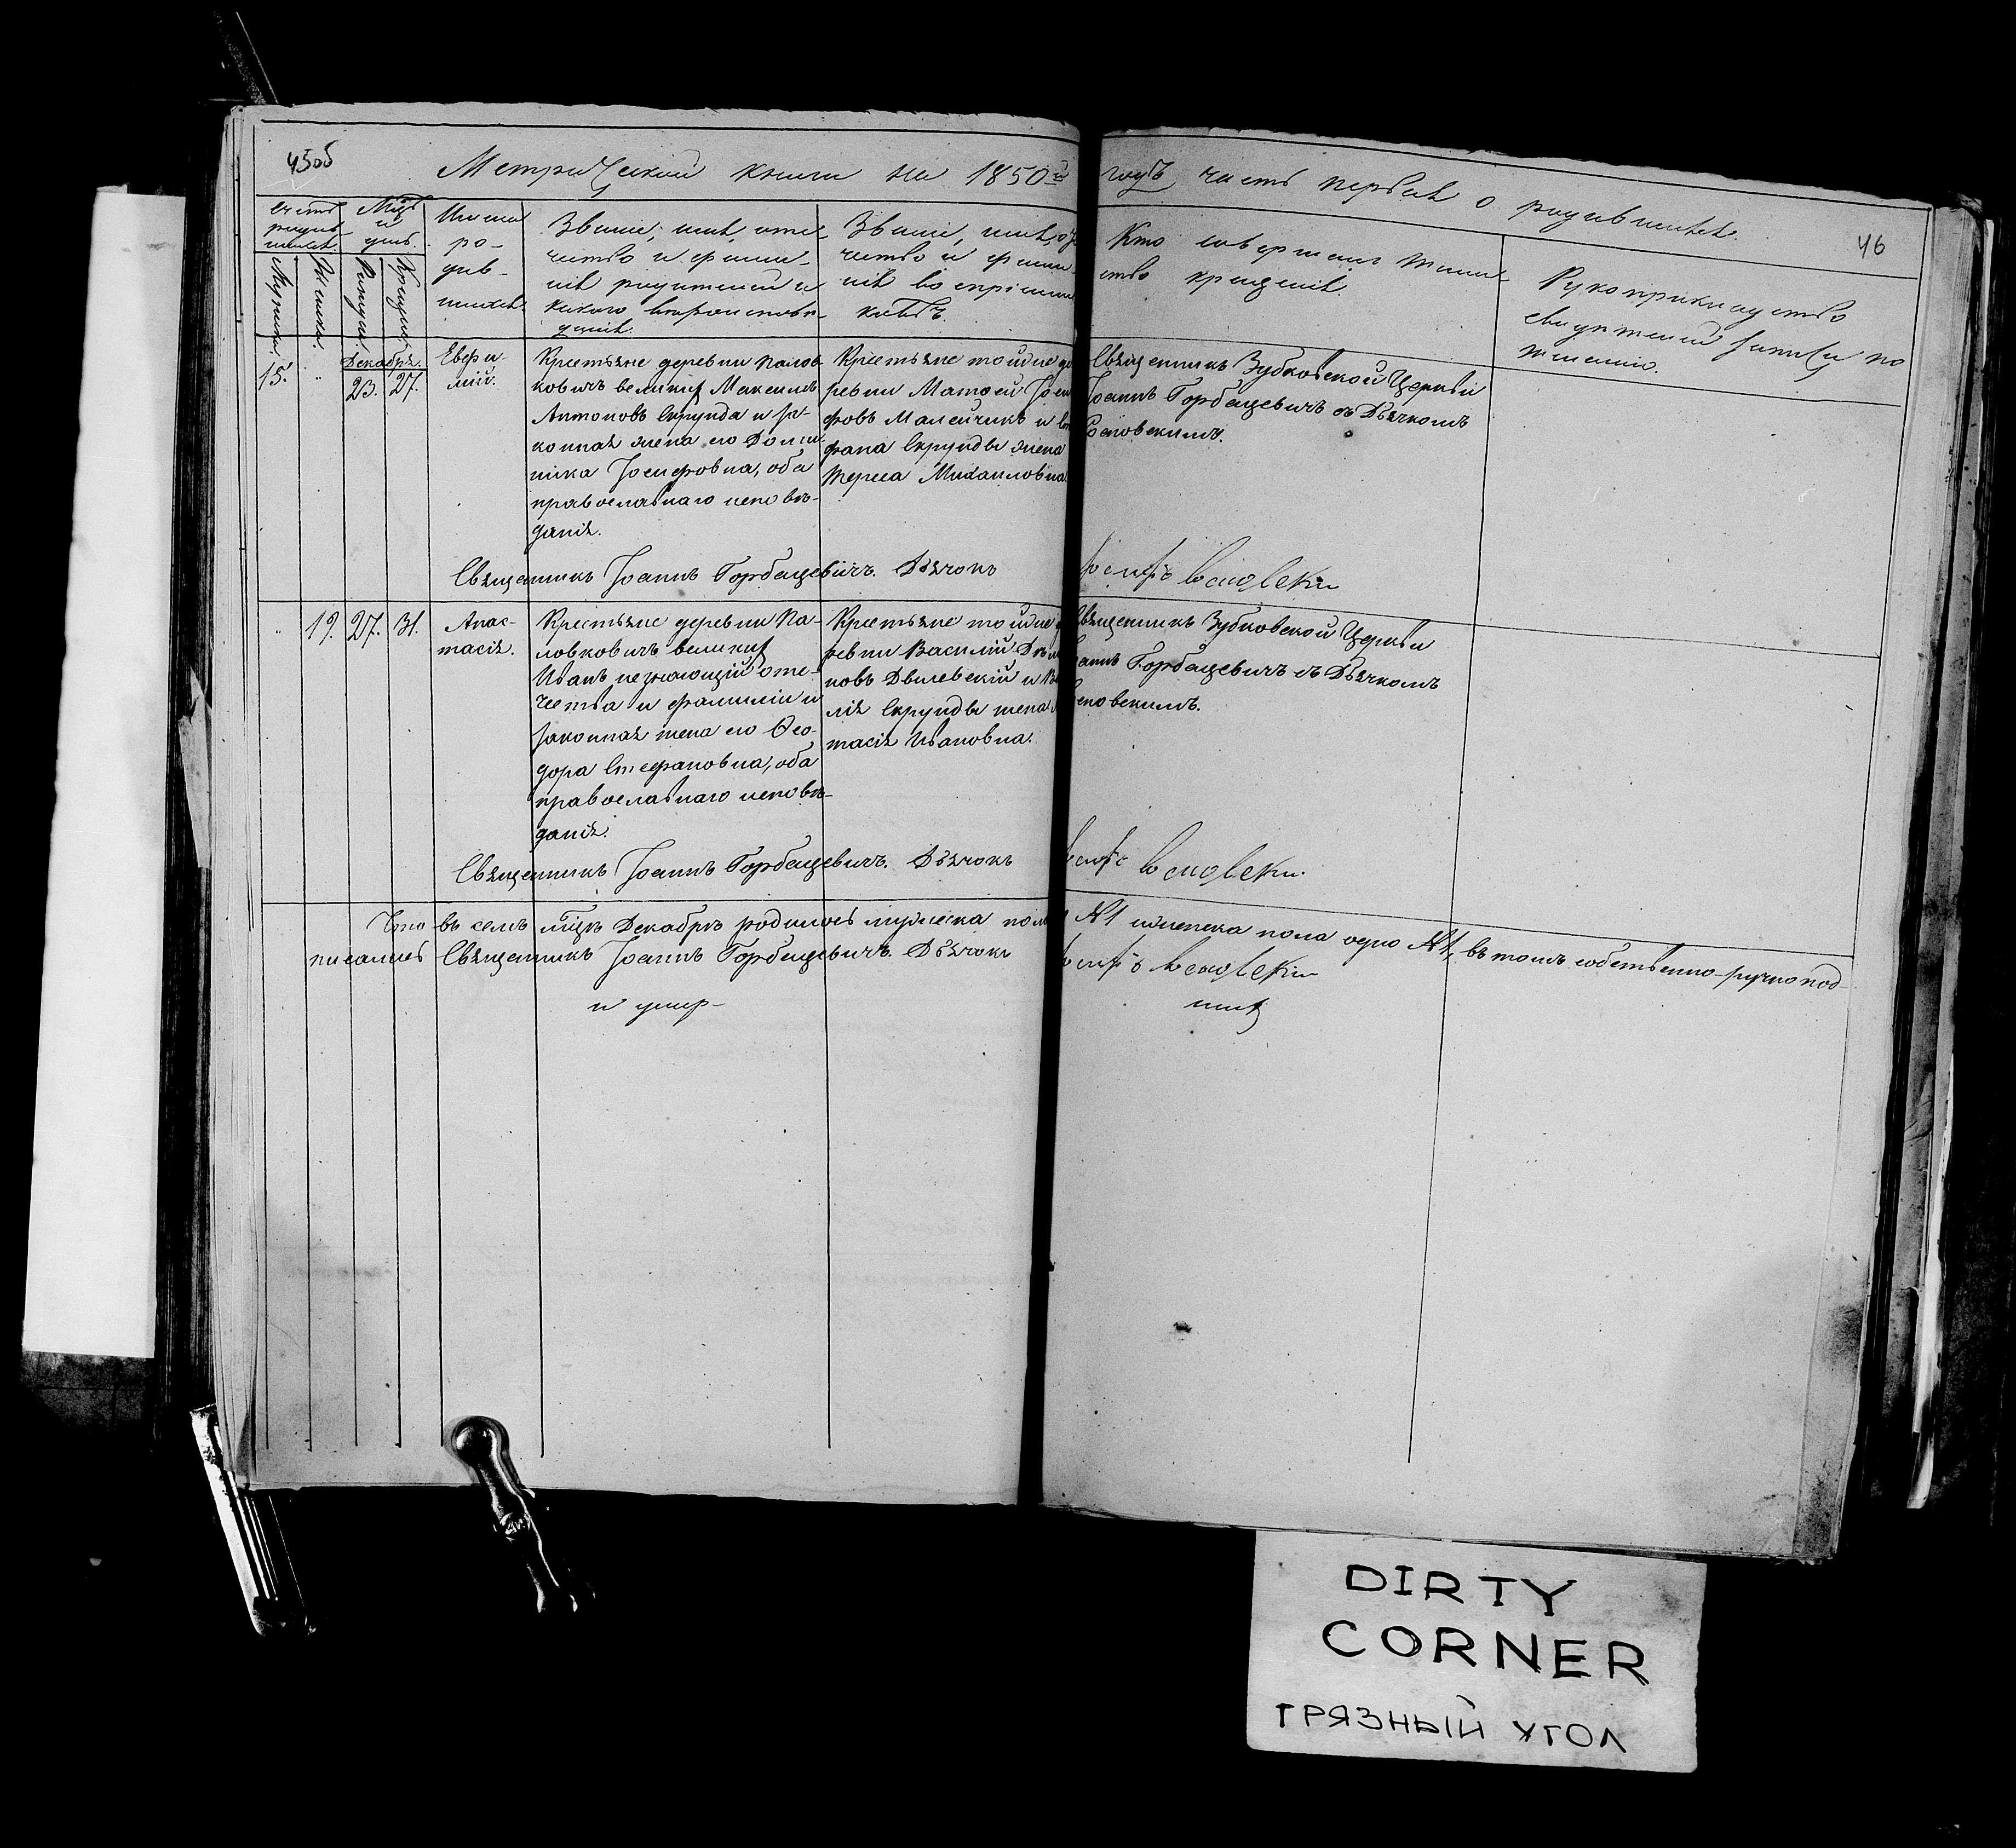 45об
Метрической книги на 1850й годъ часть первая о родившихся.
46
Счетъ родив-
шихся.
Мцъ
и
день.
Мужеска.
Женска.
Рожденія
Крещенія
Имена
ро-
див-
шихся.
Званіе, имя, оте-
чество и фами-
лія родителей и
какого вѣроисповѣ-
данія.
Званіе, имя, оте
чество и фами
лія воспріемни
ковъ.
Кто совершалъ таин-
ство крещенія.
Рукоприкладство
свидѣтелей записи по
желанію.
15.
"
Декабрь.
23. 27.
Евфи-
мій.
Крестьяне деревни Палов
ковичъ великихъ Максимъ
Антоновъ Скрунда и за-
конная жена его Доми-
ника Іосифовна, оба
православнаго исповѣ-
данія.
Крестьяне тойже де
ревни Матѳей Іоси
фовъ Малейчикъ и Сте
фана Скрунды жена
Тереса Михаиловна
Священникъ Зубковской Церкви
Іоаннъ Горбацевичъ съ Дьячкомъ
Сосновскимъ.
Священникъ Іоаннъ Горбацевичъ. Дьячокъ Іосифъ Сосновскій
" 19. 27. 31.
Анас-
тасія.
Крестьяне деревни Па-
ловковичъ великихъ
Иванъ незнающій оте-
чества и фамиліи и
законная жена его Ѳео-
дора Стефановна, оба
православнаго исповѣ-
данія.
Крестьяне тойже
ревни Василій
новъ Двилевскій и
лія Скрунды жена
тасія Ивановна.
Священникъ Зубковской Церкви
Іоаннъ Горбацевичъ съ Дьячкомъ
Сосновскимъ.
Священникъ Іоаннъ Горбацевичъ. Дьячокъ Іосифъ Сосновскій.
Что въ семъ мцѣ Декабрѣ родилось мужеска пола №1 женска пола одно №1, въ томъ собственно-ручно под-
писались Священникъ Іоаннъ Горбацевичъ. Дьячокъ Іосифъ Сосновскій
и умер-
шихъ
DIRTY
CORNER
ГРЯЗНЫЙ УГОЛ